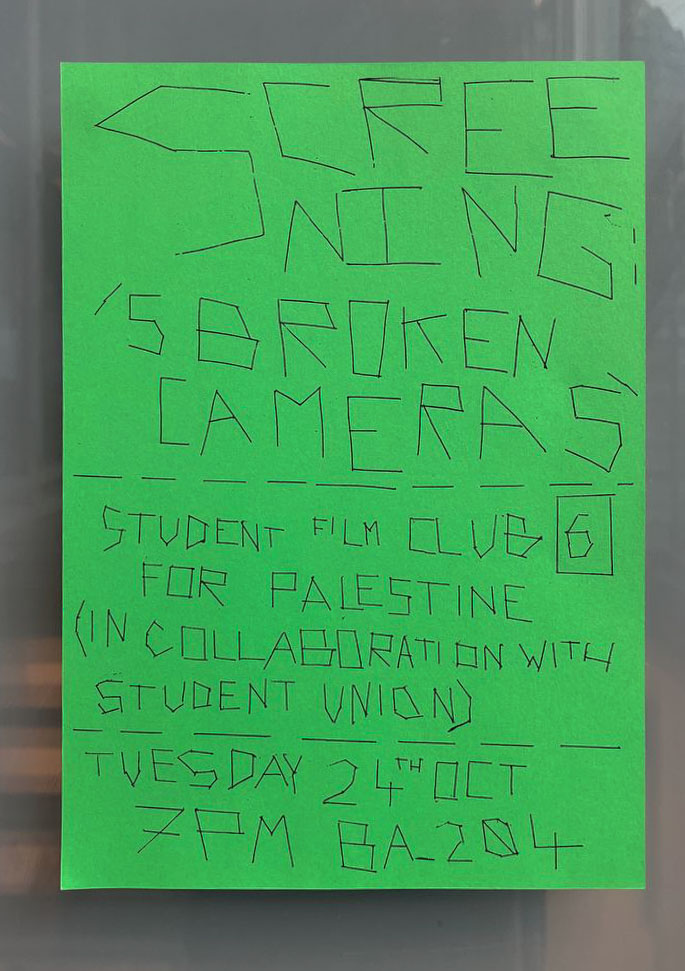 SCREE
NING:
'5 BROKEN
CAMERAS'
STUDENT FILM CLUB 6
FOR PALESTINE
(IN COLLABORATION WITH
STUDENT UNION)
TUESDAY 24TH OCT
7PM BA_204